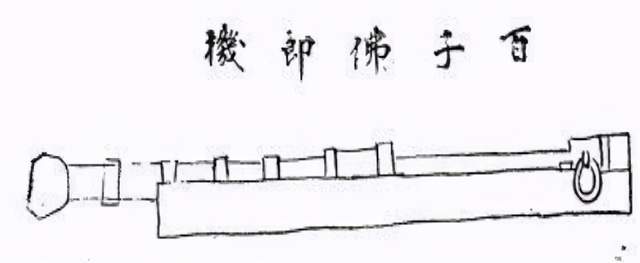 百子佛郎機